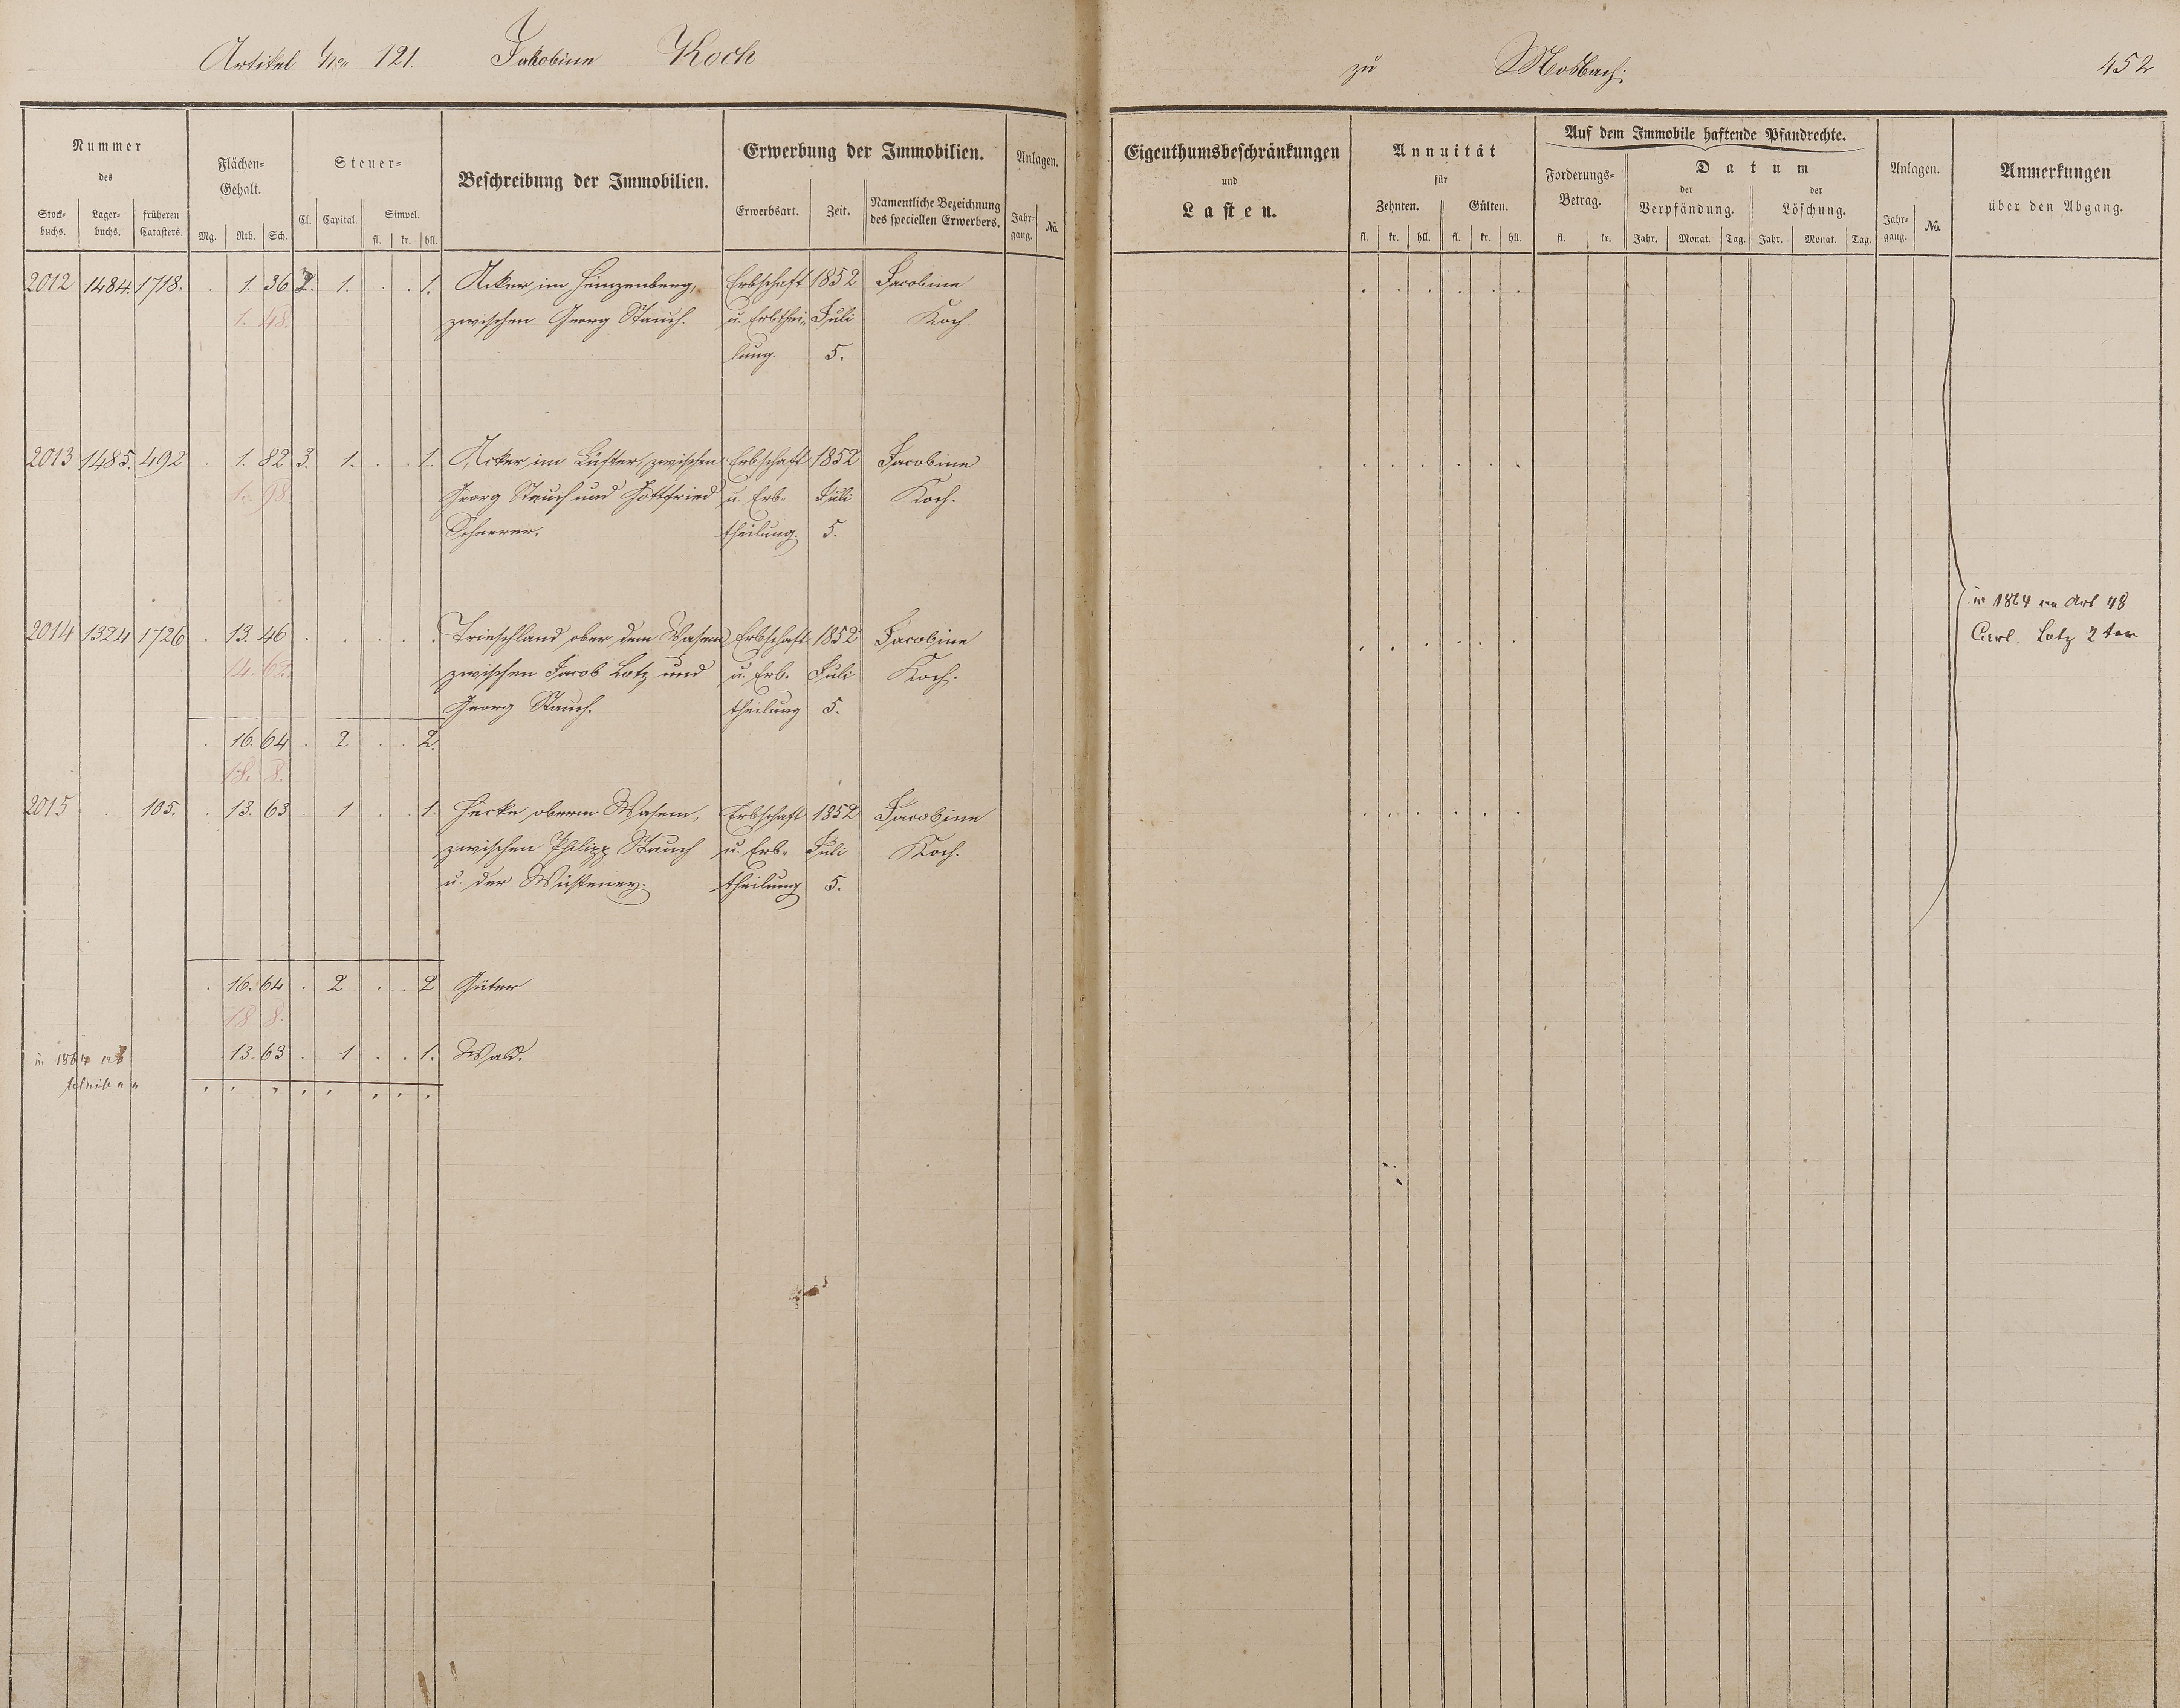 Artikel Nro 121. Jakobine Koch
zu Mosbach: 452
Nummer
des
Stock-
buchs.
Lager-
buchs.
früheren
Catasters.
Flächen-
Gehalt.
Mg. Rth. Sch.
Steuer-
Cl. Capital. Simpel.
fl. kr. hll.
Beschreibung der Immobilien.
Erwerbung der Immobilien.
Erwerbsart. Zeit.
Namentliche Bezeichnung
des speciellen Erwerbers.
Anlagen.
Jahr-
gang.
No.
Eigenthumsbeschränkungen
und
Lasten.
Annuität
für
Zehnten. Gülten.
fl. kr. hll. fl. kr. hll.
Auf dem Immobile haftende Pfandrechte.
Forderungs-
Betrag.
fl. kr.
Datum
der
Verpfändung.
der
Löschung.
Jahr. Monat. Tag. Jahr. Monat. Tag.
Anlagen.
Jahr-
gang.
No.
Anmerkungen
über den Abgang.
2012 1484. 1718. . 1. 36 1. . . 1. Acker im Heinzenberg, Erbschaft 1852 Jacobine
1. 48. zwischen Georg Stauch. u. Erbthei- Juli Koch.
lung. 5.
2013 1485. 492 . 1. 82 3. 1. . . 1. Acker im Lüster, zwischen Erbschaft 1852 Jacobine
1. 98. Georg Stauch und Gottfried u. Erb- Juli Koch.
Scheerer. theilung. 5.
2014 1324 1726 . 13. 46 . . . . . Trieschland ober dem Wasem Erbschaft 1852 Jacobine
14. 62. zwischen Jacob Lotz und u. Erb- Juli Koch.
Georg Stauch. theilung 5.
. 16. 64 . 2 . . 2.
18. 8.
2015 . 105. . 13. 63 . 1 . . 1. Hecke oberm Wasem, Erbschaft 1852 Jacobine
zwischen Philipp Stauch u. Erb- Juli Koch.
u. der Wüsteney. theilung 5.
. 16. 64 . 2 . . 2 Güter
18 8.
13. 63 . 1 . . 1. Wald.
in 1864
in 1864 an Art 48
Carl Lotz 2ter